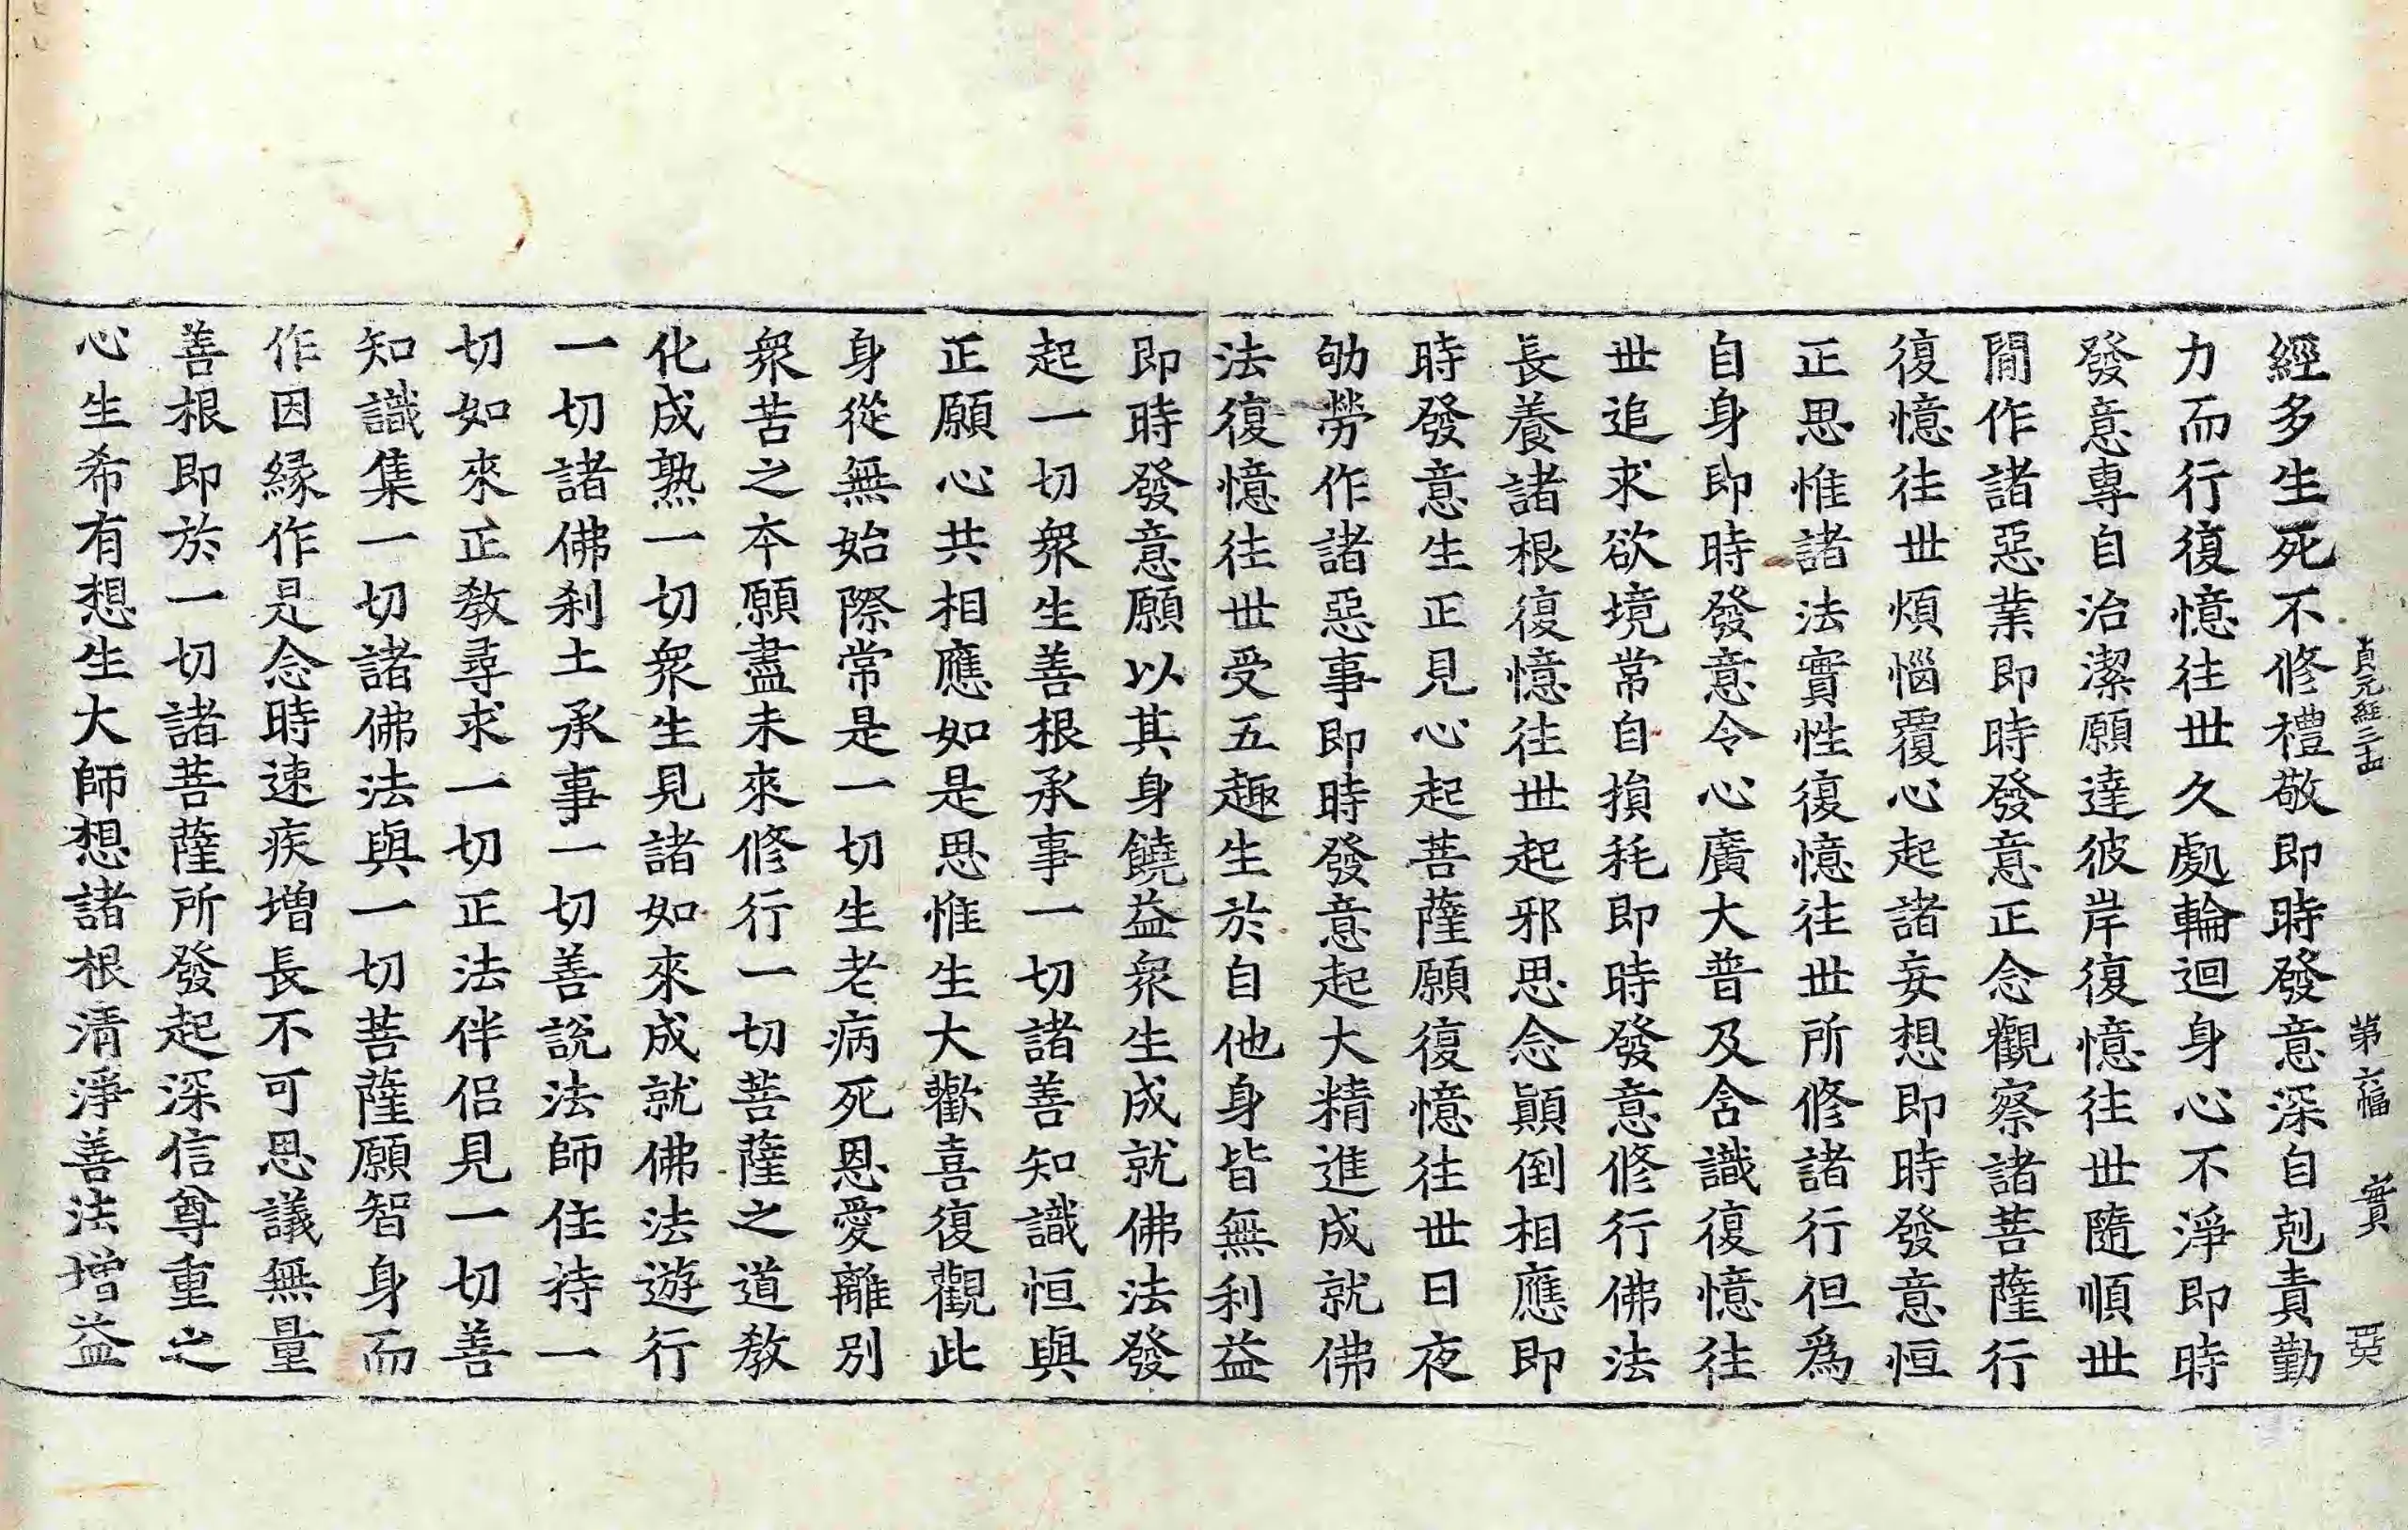 貞元經三十四 第六幅 實
經多生死不修禮敬即時發意深自剋責勤
力而行復憶往世久處輪迴身心不淨即時
發意專自治潔願達彼岸復憶往世隨順世
間作諸惡業即時發意正念觀察諸菩薩行
復憶往世煩惱覆心起諸妄想即時發意恒
正思惟諸法實性復憶往世所修諸行但爲
自身即時發意令心廣大普及含識復憶往
世追求欲境常自損耗即時發意修行佛法
長養諸根復憶往世起邪思念顚倒相應即
時發意生正見心起菩薩願復憶往世日夜
劬勞作諸惡事即時發意起大精進成就佛
法復憶往世受五趣生於自他身皆無利益
即時發意願以其身饒益衆生成就佛法發
起一切衆生善根承事一切諸善知識恒與
正願心共相應如是思惟生大歡喜復觀此
身從無始際常是一切生老病死恩愛離別
衆苦之本願盡未來修行一切菩薩之道教
化成熟一切衆生見諸如來成就佛法遊行
一切諸佛刹土承事一切善說法師住持一
切如來正教尋求一切正法伴侣見一切善
知識集一切諸佛法與一切菩薩願智身而
作因縁作是念時速疾增長不可思議無量
善根即於一切諸菩薩所發起深信尊重之
心生希有想生大師想諸根清淨善法增益